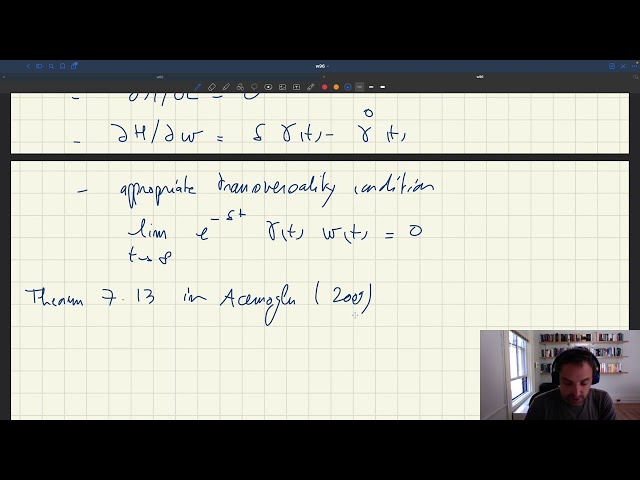 w96
w96
- ∂H/∂c = 0
- ∂H/∂w = δ γ(t) - γ̊(t)
- appropriate transversality condition
lim e^{-δt} γ(t) w(t) = 0
t→∞
Theorem 7.13 in Acemoglu (2009)